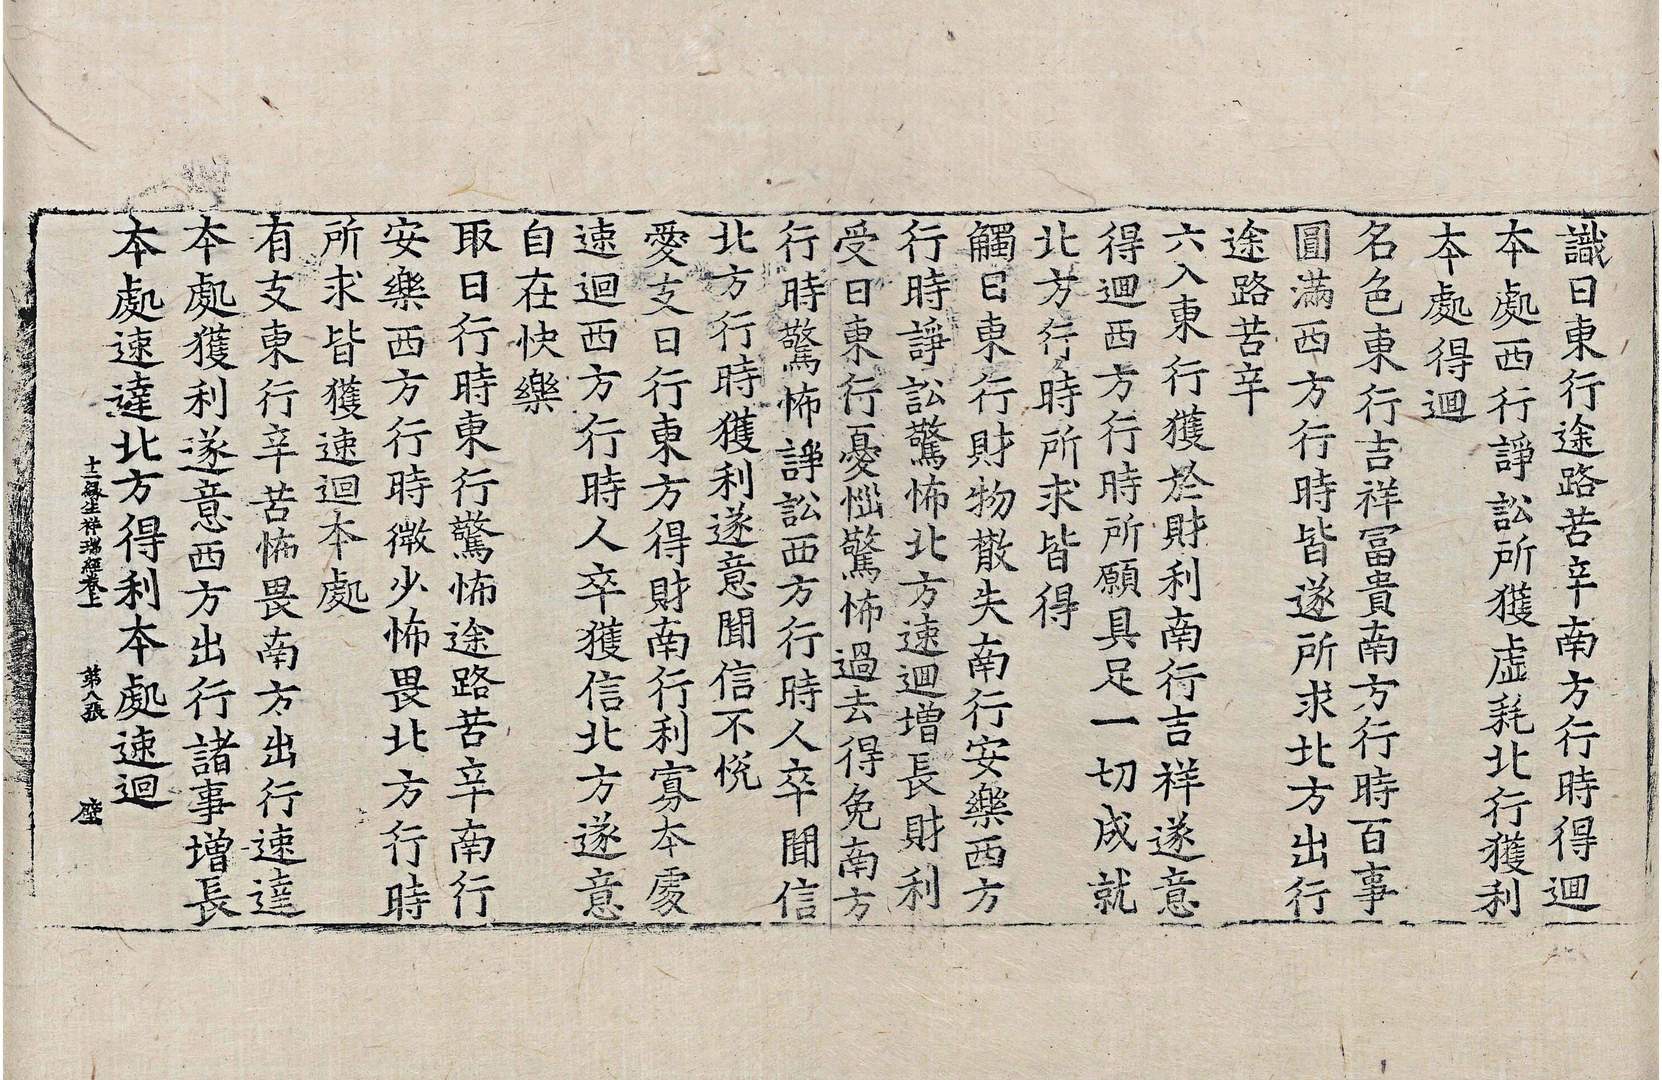 識日東行途路苦辛南方行時得迴
本處西行諍訟所獲虛耗北行獲利
本處得迴
名色東行吉祥冨貴南方行時百事
圓滿西方行時皆遂所求北方出行
途路苦辛
六入東行獲於財利南行吉祥遂意
得迴西方行時所願具足一切成就
北方行時所求皆得
觸日東行財物散失南行安樂西方
行時諍訟驚怖北方速迴增長財利
受日東行憂惱驚怖過去得免南方
行時驚怖諍訟西方行時人卒聞信
北方行時獲利遂意聞信不悅
愛支日行東方得財南行利寡本處
速迴西方行時人卒獲信北方遂意
自在快樂
取日行時東行驚怖途路苦辛南行
安樂西方行時微少怖畏北方行時
所求皆獲速迴本處
有支東行辛苦怖畏南方出行速達
本處獲利遂意西方出行諸事增長
本處速達北方得利本處速迴
十二緣生祥瑞經卷上 第八張 壁